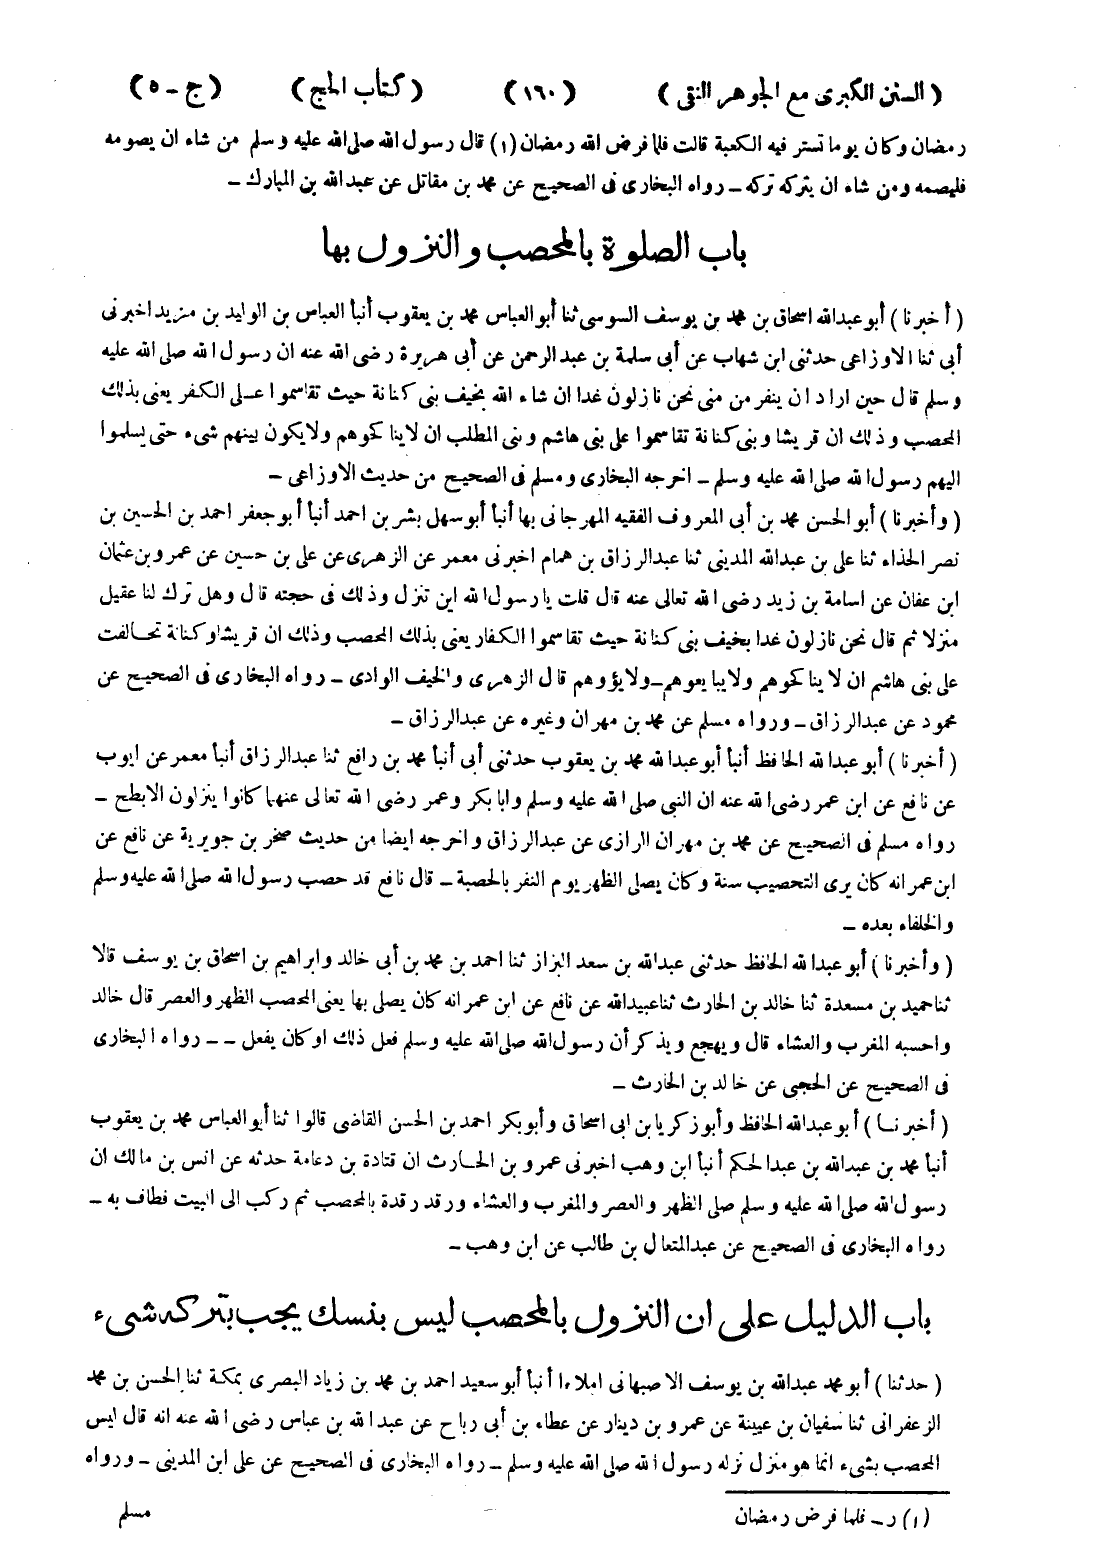 ( السنن الكبرى مع الجوهر النقى ) (١٦٠) ( كتاب الحج ) ( ج ـ ٥ )
رمضان وكان يوما تستر فيه الكعبة قالت فلما فرض الله رمضان (١) قال رسول الله صلى الله عليه وسلم من شاء ان يصومه
فليصمه ومن شاء ان يتركه تركه ـ رواه البخارى فى الصحيح عن محمد بن مقاتل عن عبدالله بن المبارك ـ
باب الصلوة بالمحصب والنزول بها
( أخبرنا ) أبو عبدالله اسحاق بن محمد بن يوسف السوسى ثنا أبو العباس محمد بن يعقوب أنبأ العباس بن الوليد بن مزيد اخبرنى
أبى ثنا الاوزاعى حدثنى ابن شهاب عن أبى سلمة بن عبد الرحمن عن أبى هريرة رضى الله عنه ان رسول الله صلى الله عليه
وسلم قال حين اراد ان ينفر من منى نحن نازلون غدا ان شاء الله بخيف بنى كنانة حيث تقاسموا على الكفر يعنى بذلك
المحصب وذلك ان قريشا وبنى كنانة تقاسموا على بنى هاشم وبنى المطلب ان لا ينا كحوهم ولا يكون بينهم شىء حتى يسلموا
اليهم رسول الله صلى الله عليه وسلم ـ اخرجه البخارى ومسلم فى الصحيح من حديث الاوزاعى ـ
( وأخبرنا ) أبو الحسن محمد بن أبى المعروف الفقيه المهرجانى بها أنبأ أبو سهل بشر بن احمد أنبأ أبو جعفر احمد بن الحسين بن
نصر الحذاء ثنا على بن عبدالله المدينى ثنا عبدالرزاق بن همام اخبرنى معمر عن الزهرى عن على بن حسين عن عمرو بن عثمان
ابن عفان عن اسامة بن زيد رضى الله تعالى عنه قال قلت يا رسول الله اين تنزل وذلك فى حجته قال وهل ترك لنا عقيل
منزلا ثم قال نحن نازلون غدا بخيف بنى كنانة حيث تقاسموا الكفار يعنى بذلك المحصب وذلك ان قريشا وكنانة تحالفت
على بنى هاشم ان لا ينا كحوهم ولا يبايعوهم ـ ولا يؤوهم قال الزهرى والخيف الوادى ـ رواه البخارى فى الصحيح عن
محمود عن عبدالرزاق ـ ورواه مسلم عن محمد بن مهران وغيره عن عبدالرزاق ـ
( أخبرنا ) أبو عبدالله الحافظ أنبأ أبو عبدالله محمد بن يعقوب حدثنى أبى أنبأ محمد بن رافع ثنا عبدالرزاق أنبأ معمر عن ايوب
عن نافع عن ابن عمر رضى الله عنه ان النبى صلى الله عليه وسلم وابا بكر وعمر رضى الله تعالى عنهما كانوا ينزلون الابطح ـ
رواه مسلم فى الصحيح عن محمد بن مهران الرازى عن عبدالرزاق واخرجه ايضا من حديث صخر بن جويرية عن نافع عن
ابن عمر انه كان يرى التحصيب سنة وكان يصلى الظهر يوم النفر بالحصبة ـ قال نافع قد حصب رسول الله صلى الله عليه وسلم
والخلفاء بعده ـ
( وأخبرنا ) أبو عبدالله الحافظ حدثنى عبدالله بن سعد البزاز ثنا احمد بن محمد بن أبى خالد وابراهيم بن اسحاق بن يوسف قالا
ثنا حميد بن مسعدة ثنا خالد بن الحارث ثنا عبيدالله عن نافع عن ابن عمر انه كان يصلى بها يعنى المحصب الظهر والعصر قال خالد
واحسبه المغرب والعشاء قال ويهجع ويذكر أن رسول الله صلى الله عليه وسلم فعل ذلك او كان يفعل ـ ـ رواه البخارى
فى الصحيح عن الحجبى عن خالد بن الحارث ـ
( أخبرنا ) أبو عبدالله الحافظ وأبو زكريا بن ابى اسحاق وأبو بكر احمد بن الحسن القاضى قالوا ثنا أبو العباس محمد بن يعقوب
أنبأ محمد بن عبدالله بن عبدالحكم أنبأ ابن وهب اخبرنى عمرو بن الحارث ان قتادة بن دعامة حدثه عن انس بن مالك ان
رسول الله صلى الله عليه وسلم صلى الظهر والعصر والمغرب والعشاء ورقد رقدة بالمحصب ثم ركب الى البيت فطاف به ـ
رواه البخارى فى الصحيح عن عبدالمتعال بن طالب عن ابن وهب ـ
باب الدليل على ان النزول بالمحصب ليس بنسك يجب بتركه شىء
( حدثنا ) أبو محمد عبدالله بن يوسف الاصبهانى املاءا أنبأ أبو سعيد احمد بن محمد بن زياد البصرى بمكة ثنا الحسن بن محمد
الزعفرانى ثنا سفيان بن عيينة عن عمرو بن دينار عن عطاء بن أبى رباح عن عبدالله بن عباس رضى الله عنه انه قال ليس
المحصب بشىء انما هو منزل نزله رسول الله صلى الله عليه وسلم ـ رواه البخارى فى الصحيح عن على ابن المدينى ـ ورواه
(١) ر ـ فلما فرض رمضان
مسلم